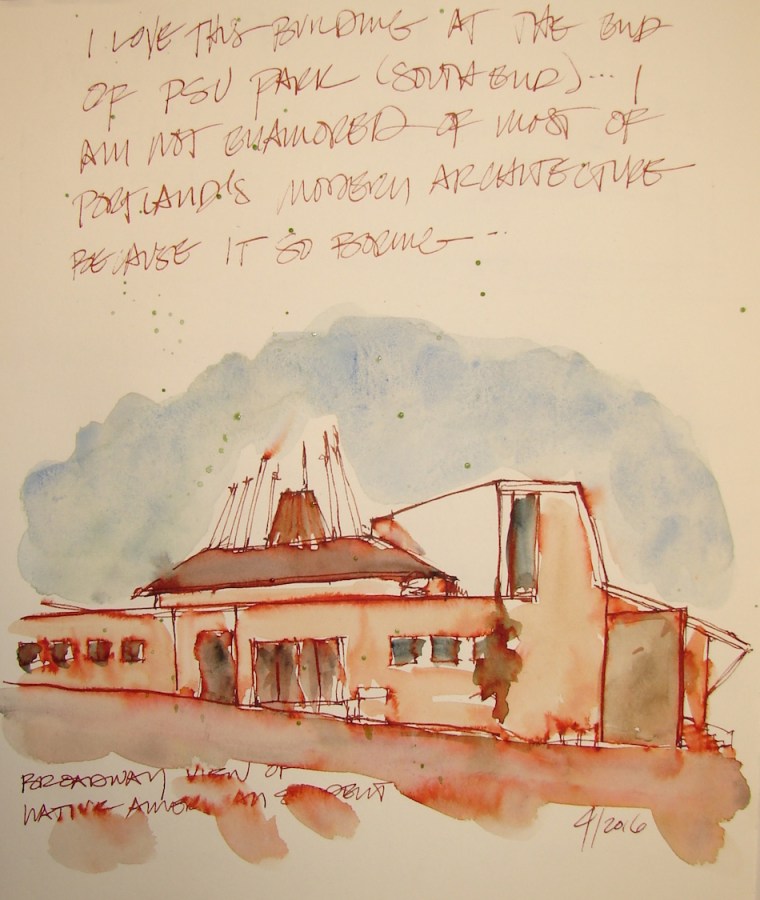 I LOVE THIS BUILDING AT THE END
OF PSU PARK (SOUTH END)... I
AM NOT ENAMORED OF MOST OF
PORTLAND'S MODERN ARCHITECTURE
BECAUSE IT SO BORING...
BROADWAY VIEW OF
NATIVE AMERICAN STUDENT
/2016